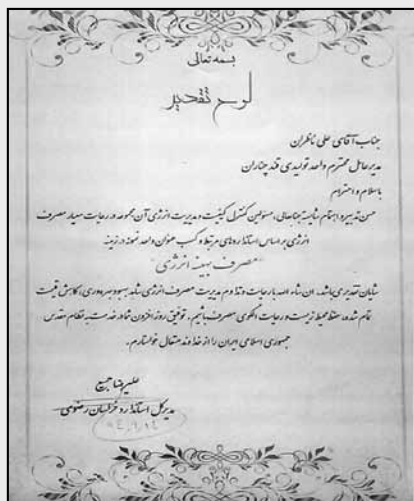 بسمه تعالی
لوح تقدیر
جناب آقای علی ناظران
مدیرعامل محترم واحد تولیدی قند چناران
باسلام و احترام
حسن تدبیر و اهتمام شایسته جنابعالی، مسؤولین کنترل کیفیت و مدیریت انرژی آن مجموعه در رعایت معیار مصرف
انرژی بر اساس استانداردهای مرتبط و کسب عنوان واحد نمونه در زمینه
"مصرف بهینه انرژی"
شایان تقدیر می‌باشد. ان شاء الله با رعایت و تداوم مدیریت مصرف انرژی شاهد بهبود بهره‌وری، کاهش قیمت
تمام شده، حفظ محیط زیست و رعایت الگوی مصرف باشیم. توفیق روز افزون شما در خدمت به نظام مقدس
جمهوری اسلامی ایران را از خداوند متعال خواستارم.
مدیرکل استاندارد خراسان رضوی